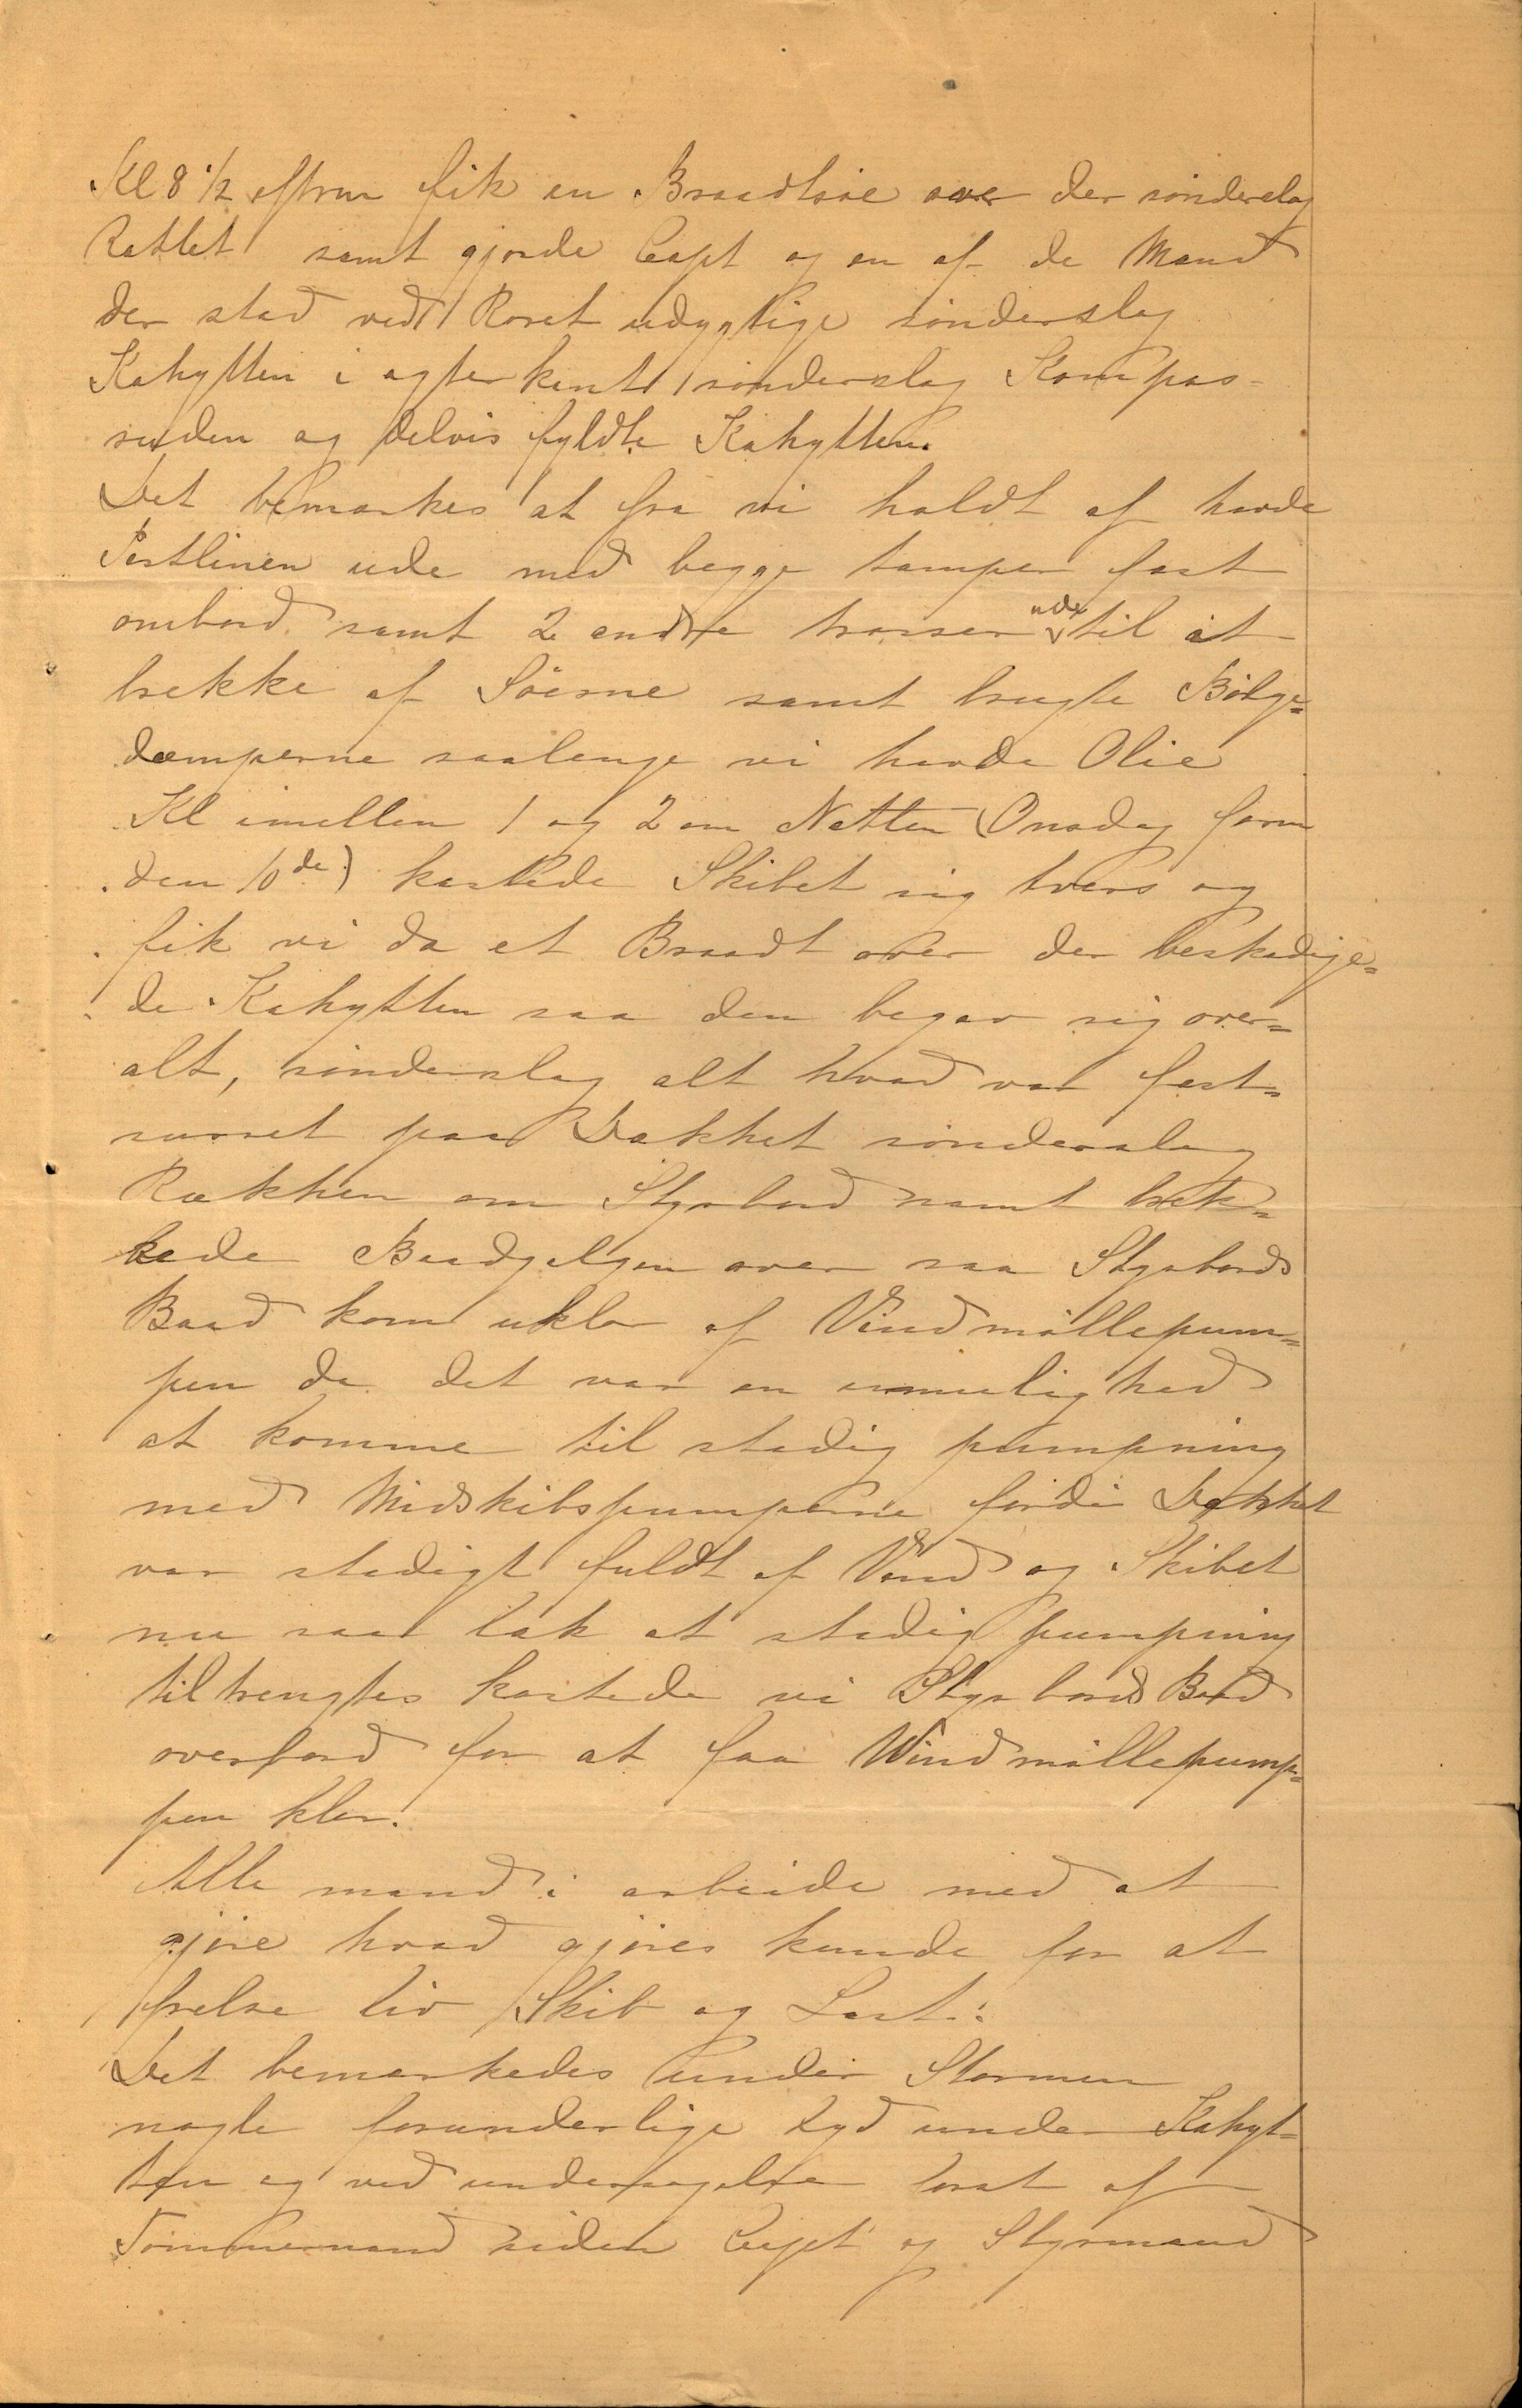 Kl 8 1/2 eftrm fik en Braadtsøe over der sønderslog
Rattet samt gjorde Capt og en af de Mænd
der stod ved Roret udygtige sønderslog
Kahytten i agterkent sønderslog Kompas-
ruden og delvis fyldte Kahytten.
Det bemærkes at fra vi holdt af havde
Pertlinen ude med begge tamper fast
ombord samt 2 andre trosser ude til at
brekke af Søerne samt brugte Bølge=
dæmperne saalenge vi havde Olie
Kl imellem 1 og 2 om Natten (Onsdag form
den 10de) kastede Skibet sig tvers og
fik vi da et Braadt over der beskadige=
de Kahytten saa den begav sig over=
alt, sønderslog alt hvad var fast=
surret paa Dækket sønderslog
Rækken om Styrbord samt bræk=
kede Baadgalgen over saa Styrbords
Baad kom uklar af Vindmøllepum=
pen da det var en umulighed
at komme til stadig pumpning
med Midskibspumperne fordi Dækket
var stadigt fuldt af Vand og Skibet
nu saa læk at stadig pumpning
tiltrengtes kastede vi Styrbords Baad
overbord for at faa Windmøllepump=
pen klar.
Alle mand i arbeide med at
gjøre hvad gjøres kunde for at
frelse liv Skib og Last.
Det bemærkedes under Stormen
nogle forunderlige Lyd under Kahyt=
ten og ved undersøgelse først af
Tømmermand siden Capt og Styrmand